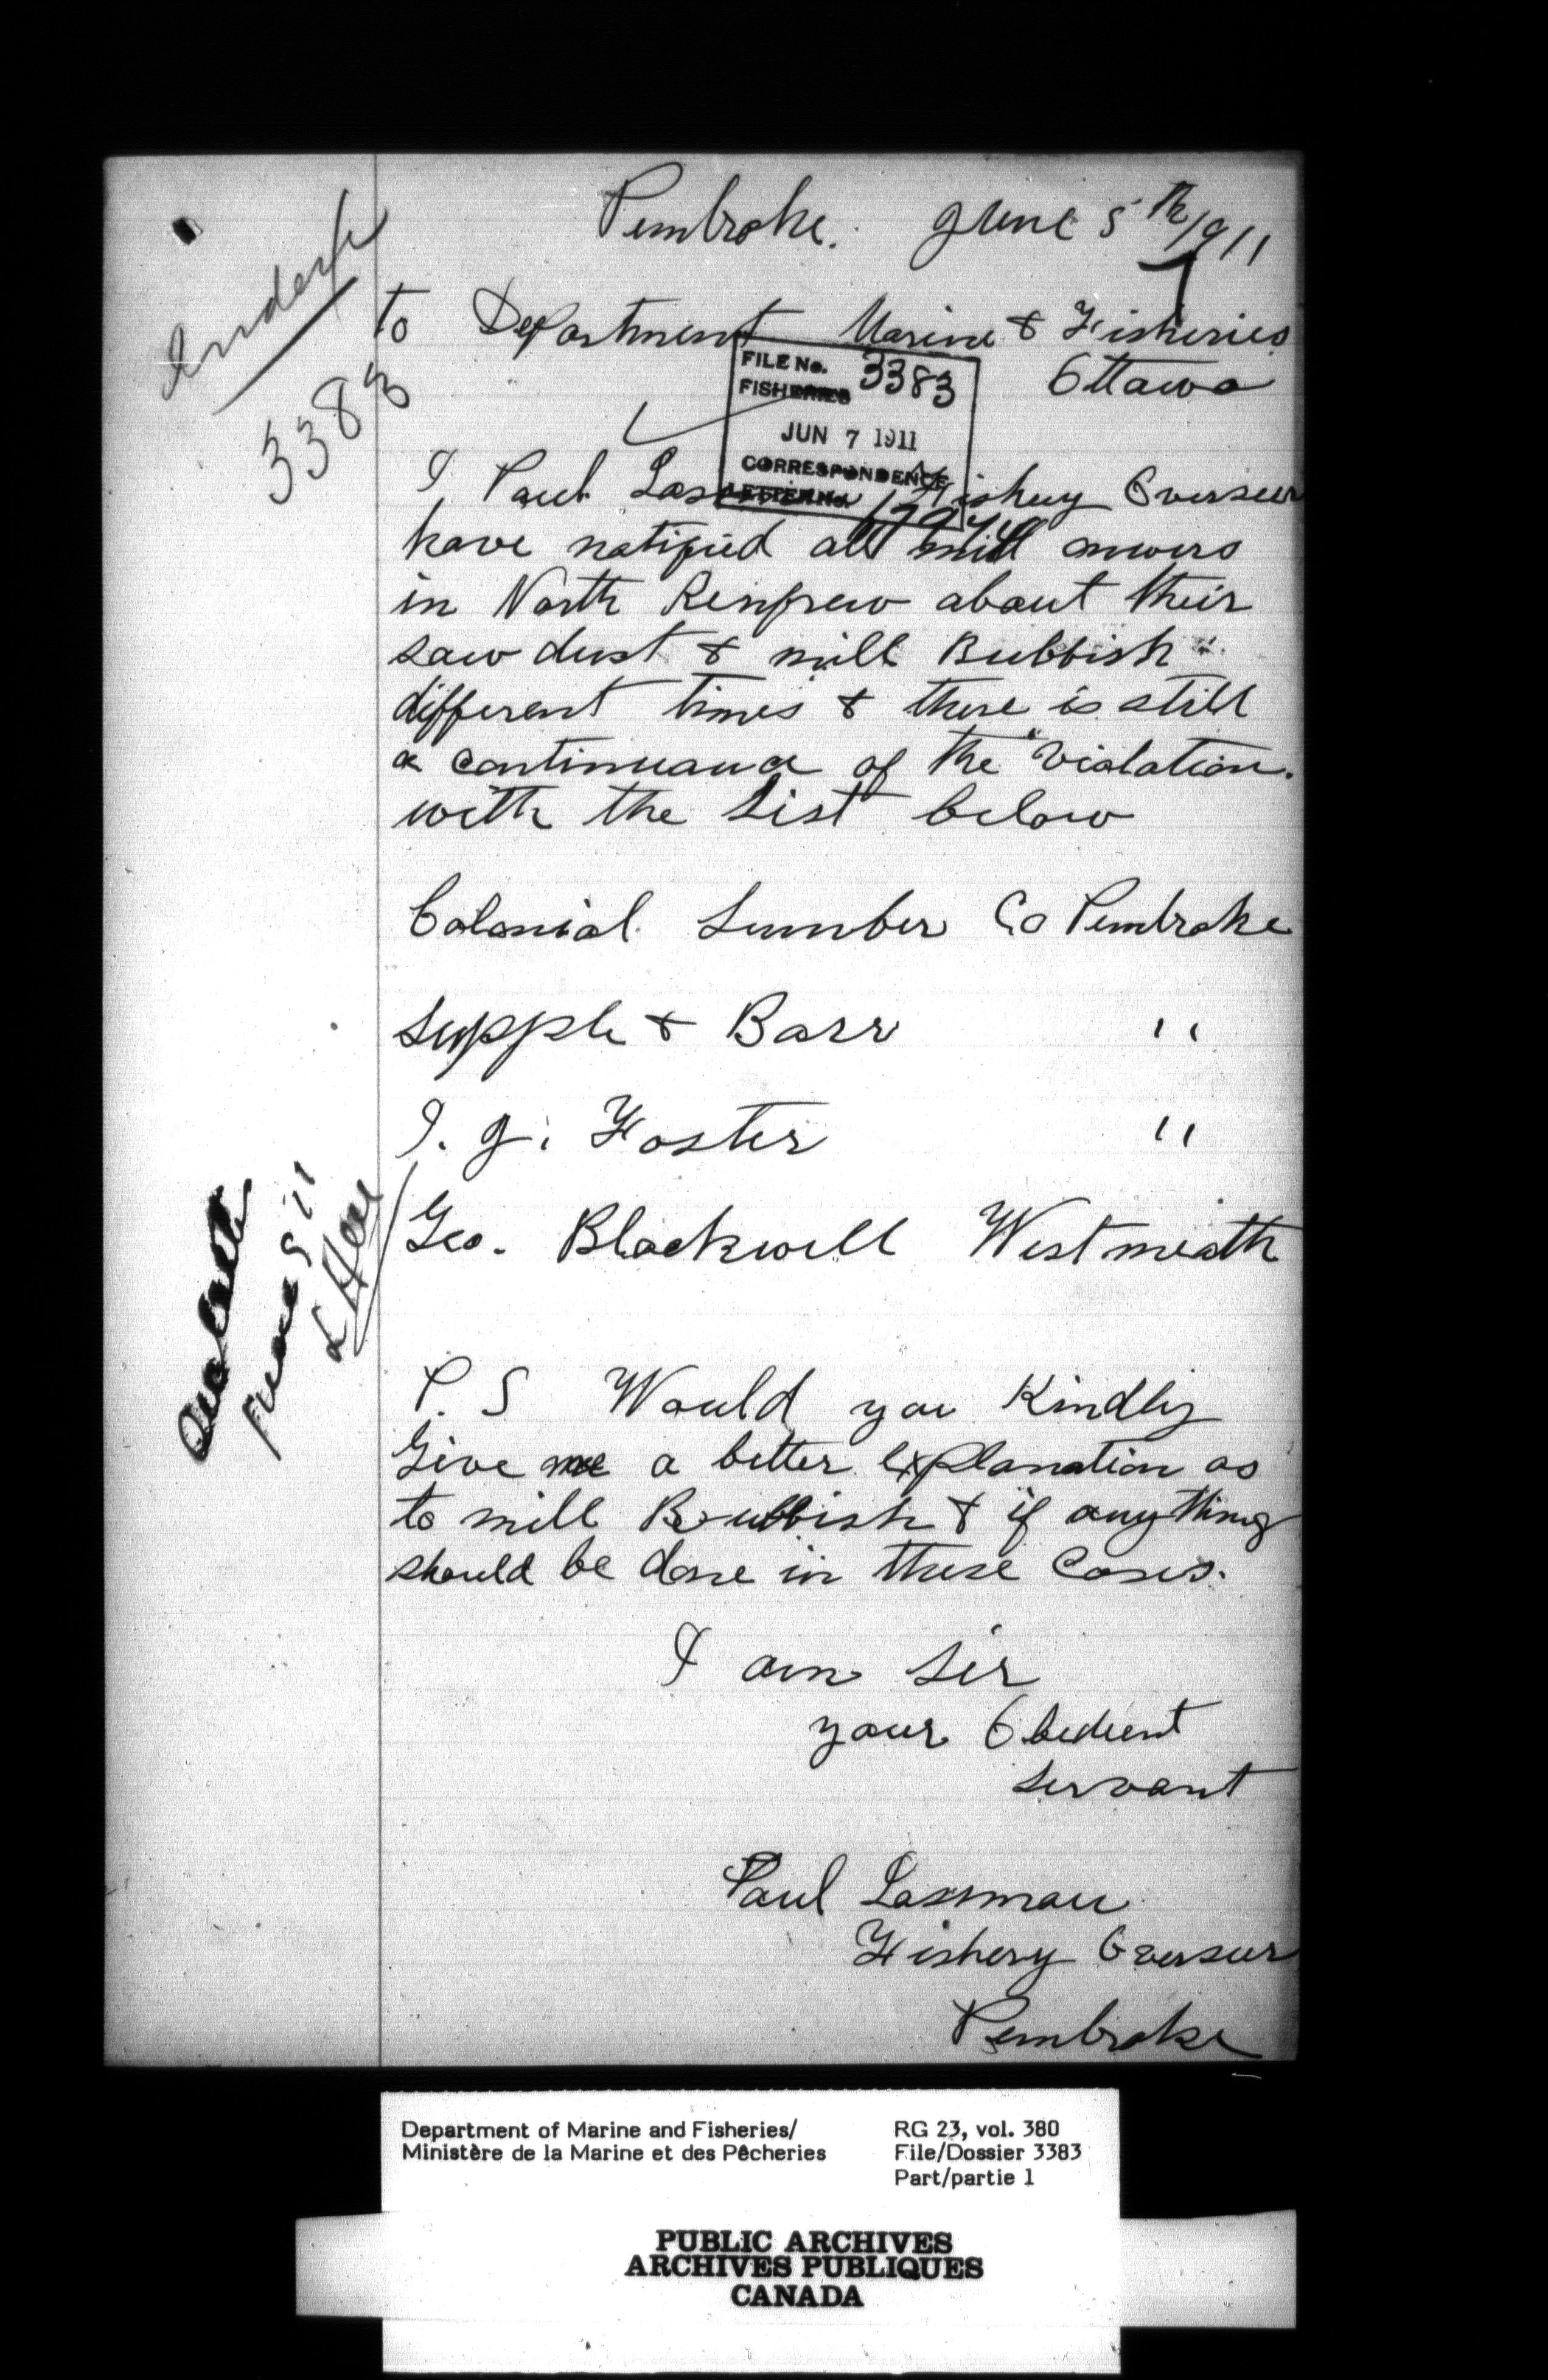 Pembroke. June 5th/1911
to Department Marine & Fisheries
Ottawa
3383
FILE No. 3383
FISHERIES
JUN 7 1911
CORRESPONDENCE
LETTER No.
I Paul Fishery Overseer
have notified all mill owners
in North Renfrew about their
saw dust & mill Rubbish
different times & there is still
a continuance of the violation.
with the List below
Colonial Lumber Co Pembroke
Supple & Barr "
I. J. Foster "
Geo. Blackwell Westmeath
P. S Would you Kindly
Give me a better explanation as
to mill Rubbish & if anything
should be done in these Cases.
I am Sir
your Obedient
Servant
Paul Lassman
Fishery Overseer
Pembroke
Department of Marine and Fisheries/ RG 23, vol. 380
Ministère de la Marine et des Pêcheries File/Dossier 3383
Part/partie 1
PUBLIC ARCHIVES
ARCHIVES PUBLIQUES
CANADA